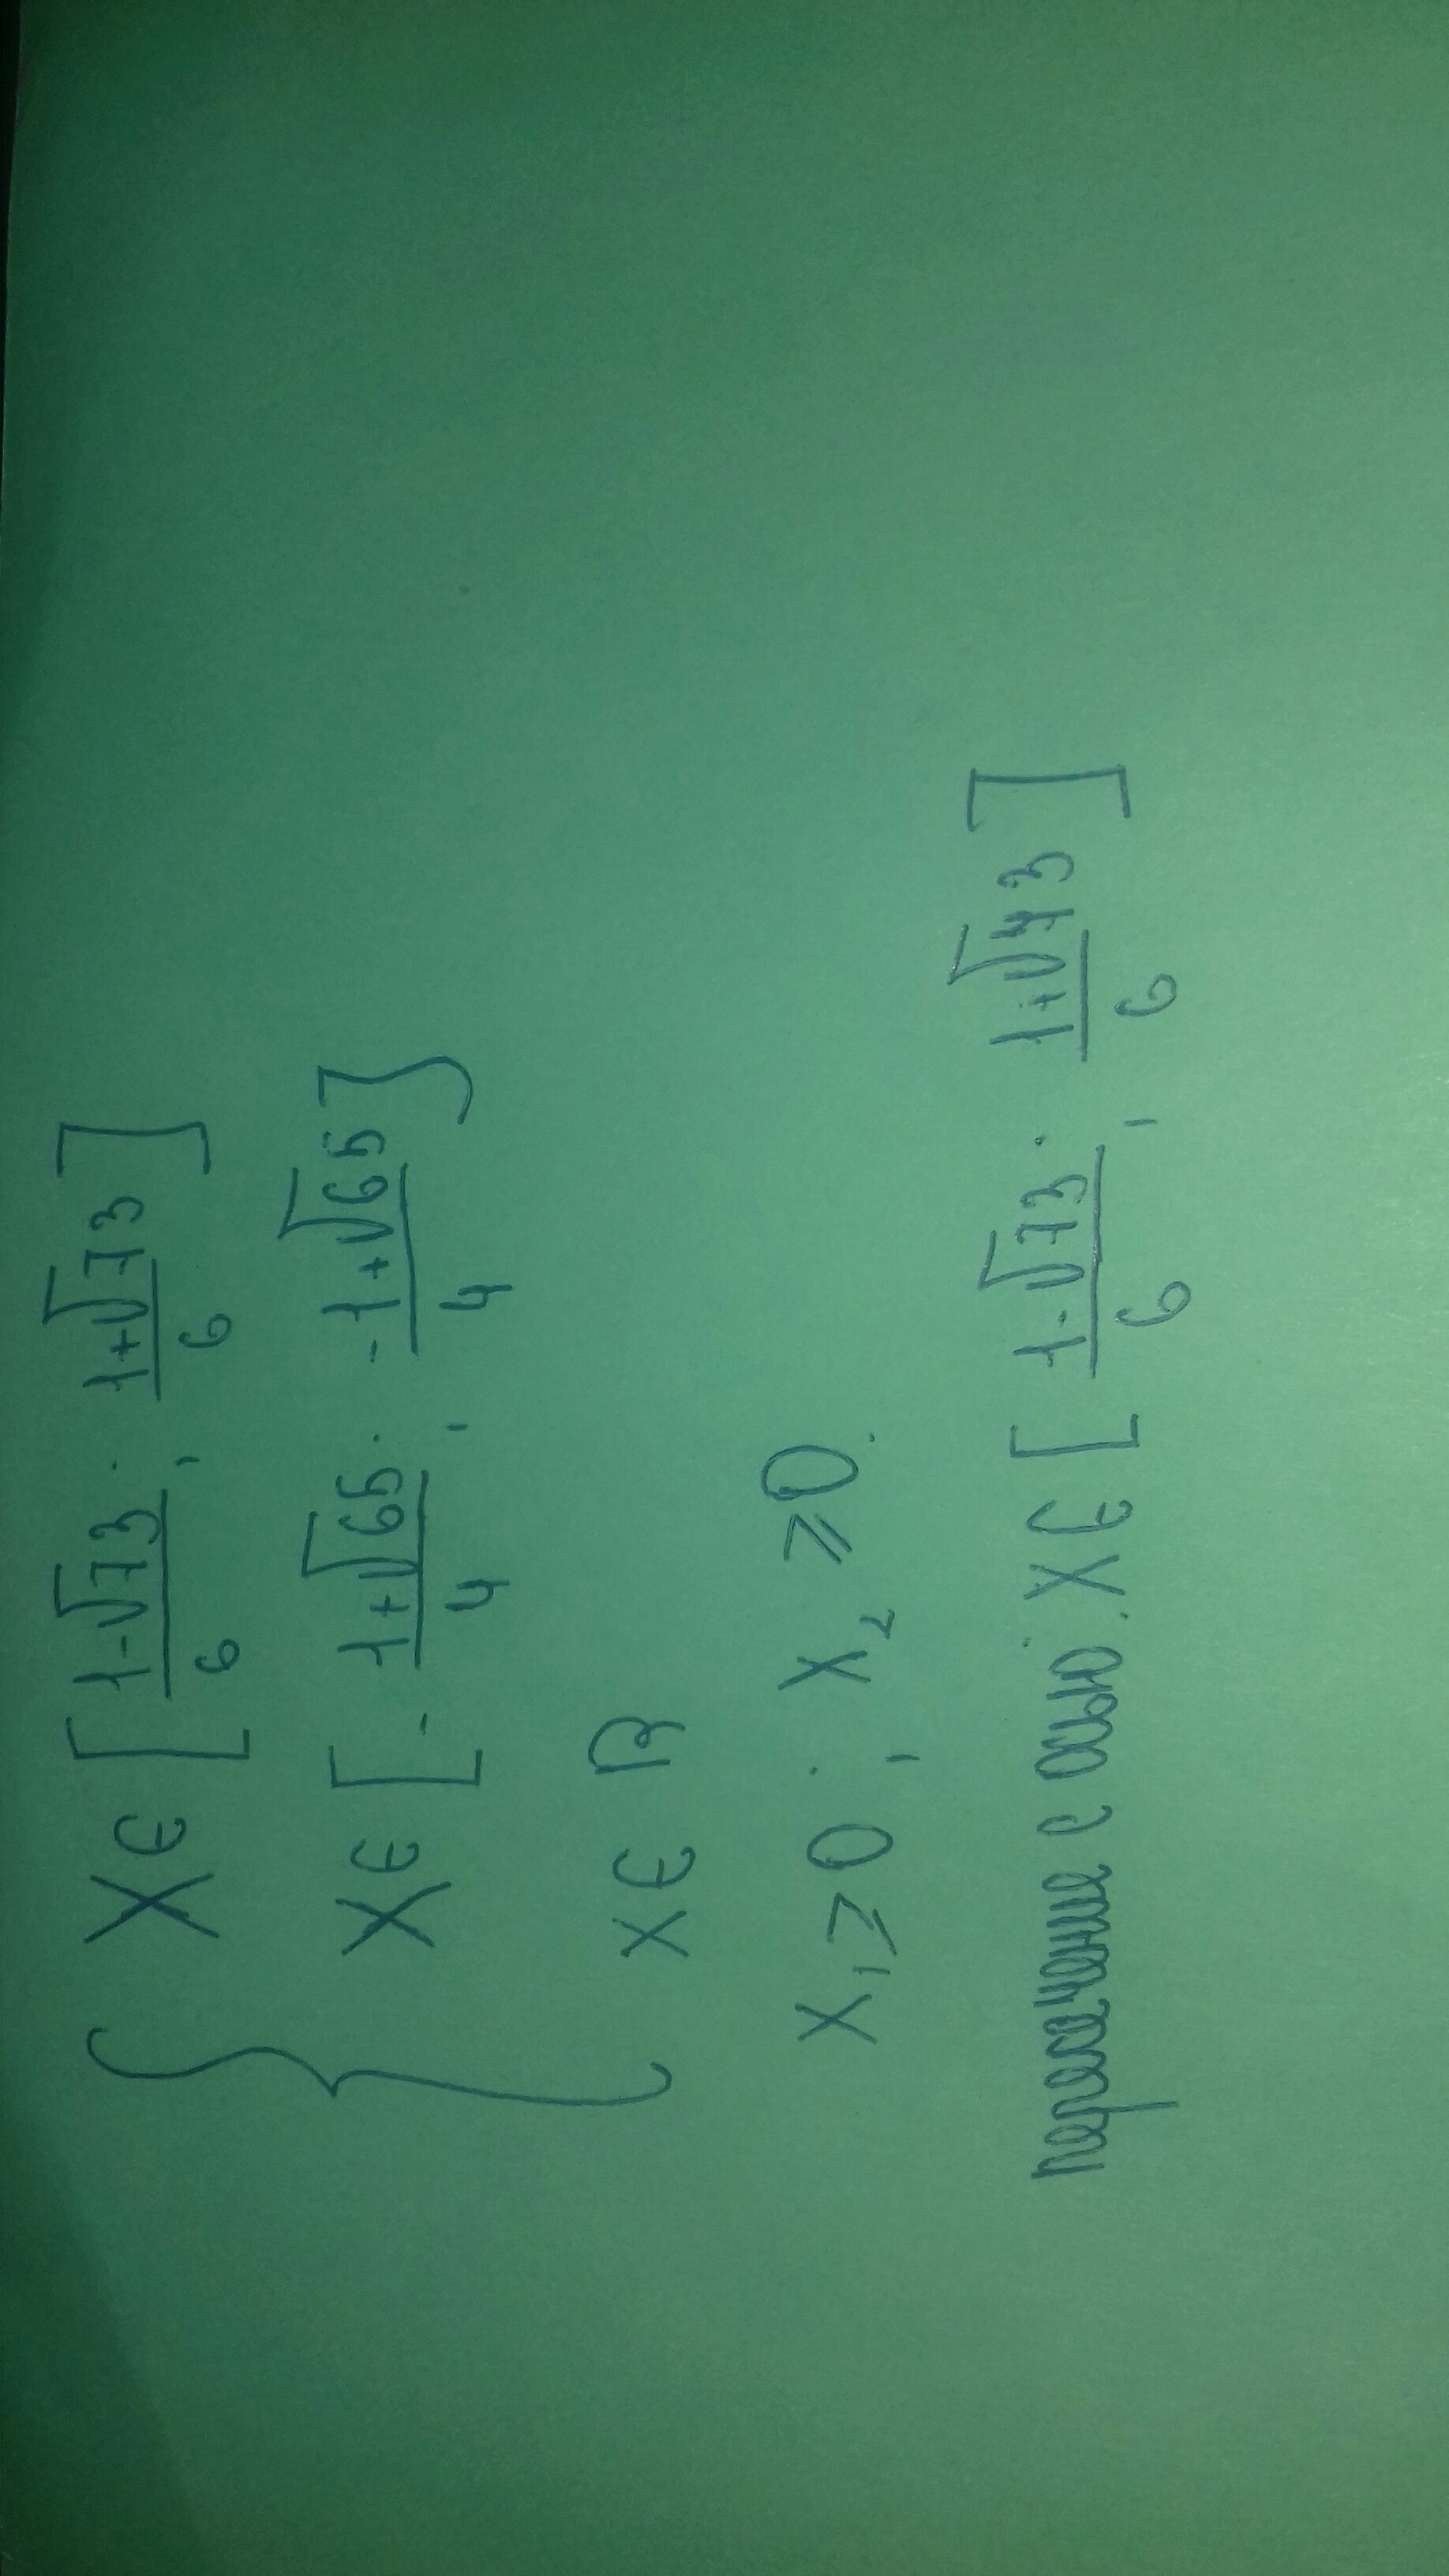 { X ∈ [ (1-√73)/6 ; (1+√73)/6 ]
X ∈ [ - (1+√65)/4 ; (-1+√65)/4 ]
X ∈ R
X₁ ⩾ 0 ; X₂ ⩾ 0.
пересечение с осью: X ∈ [ (1-√73)/6 ; (1+√73)/6 ]